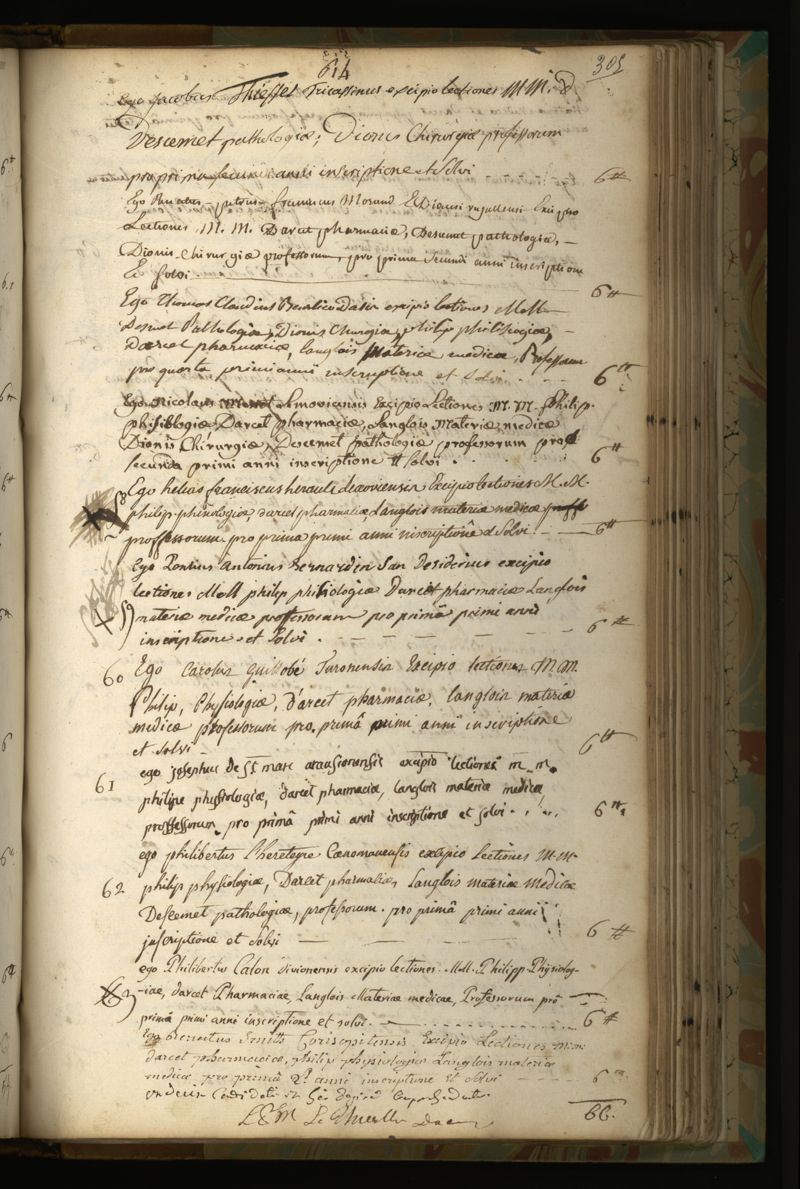 614
305
Ego Jacobus Thiesset Tricassinus excipio lectiones M M. D
Descemet pathologiæ; Dionis Chirurgiæ professorum
pro prima secundi anni inscriptione et Solvi
6 ₶
Ego franciscus Morand Excipio
Lectiones M. M. Darcet pharmaciæ, Desemet pathologiæ, –
Dionis chirurgiæ professorum, pro prima secundi anni inscriptione
Et solvi
6 ₶
Ego Thomas Claudius excipio lectiones MM
Desmet Pathologiæ, Dionis Chirurgiæ, philip philisogiæ, –
Darcet pharmaciæ, langlois Materiæ medicæ, Professorum
pro quarta primi anni inscriptione et solvi.
6 ₶
Ego Nicolaus Lemovicensis Excipio Lectiones M. M. Philip.
phisiologiæ, Darcet pharmaciæ, Langlois Materiæ medicæ
Dionis Chirurgiæ, Descemet pathologiæ professorum pro
secunda primi anni inscriptione et solvi
6 ₶
58 Ego helias franciscus herault Excipio lectiones M. M.
philip phisiologiæ, darcet pharmaciæ Langlois materiæ medicæ
professorum pro prima primi anni inscriptione et Solvi
6 ₶
Ego Pontius Antonius Bernardin San Desiderius excipio
lectiones MM philip phisiologiæ Darcet pharmaciæ Langlois
59 materiæ medicæ professorum pro primâ primi anni
inscriptione et solvi.
6 ₶
60 Ego Carolus Guillobé Turonensis Excipio lectiones M. M.
Philip, Physiologiæ, d'arcet pharmaciæ, langlois materiæ
medicæ professorum pro primâ primi anni inscriptione
et solvi
6 ₶
61 ego josephus De St marc arausionensis excipio lectiones m. m.
philipe physiologiæ, darcet pharmaciæ, langlois materiæ medicæ
proffessorum pro primâ primi anni inscriptione et solvi.
6 ₶
ego philibertus Cœnomanensis excipio Lectiones M. M.
62 philip physiologiæ, Darcet pharmaciæ, Langlois materiæ Medicæ
Descemet pathologiæ, professorum. pro primâ primi anni
inscriptione et solvi
6 ₶
ego Philibertus Calon divionensis excipio lectiones M.M. Philipp Physiolog-
63 -iæ, darcet Pharmaciae, Langlois Materiae medicae, Professorum pro
primâ primi anni inscriptione et solvi.
6 ₶
Ego renatus Smith Corisopitensis Excipio Lectiones mm
darcet pharmaciæ, philip physiologiæ Langlois materiæ
medicæ pro primâ 2i anni inscriptione Et Solvi
6 ₶
undecim
66.